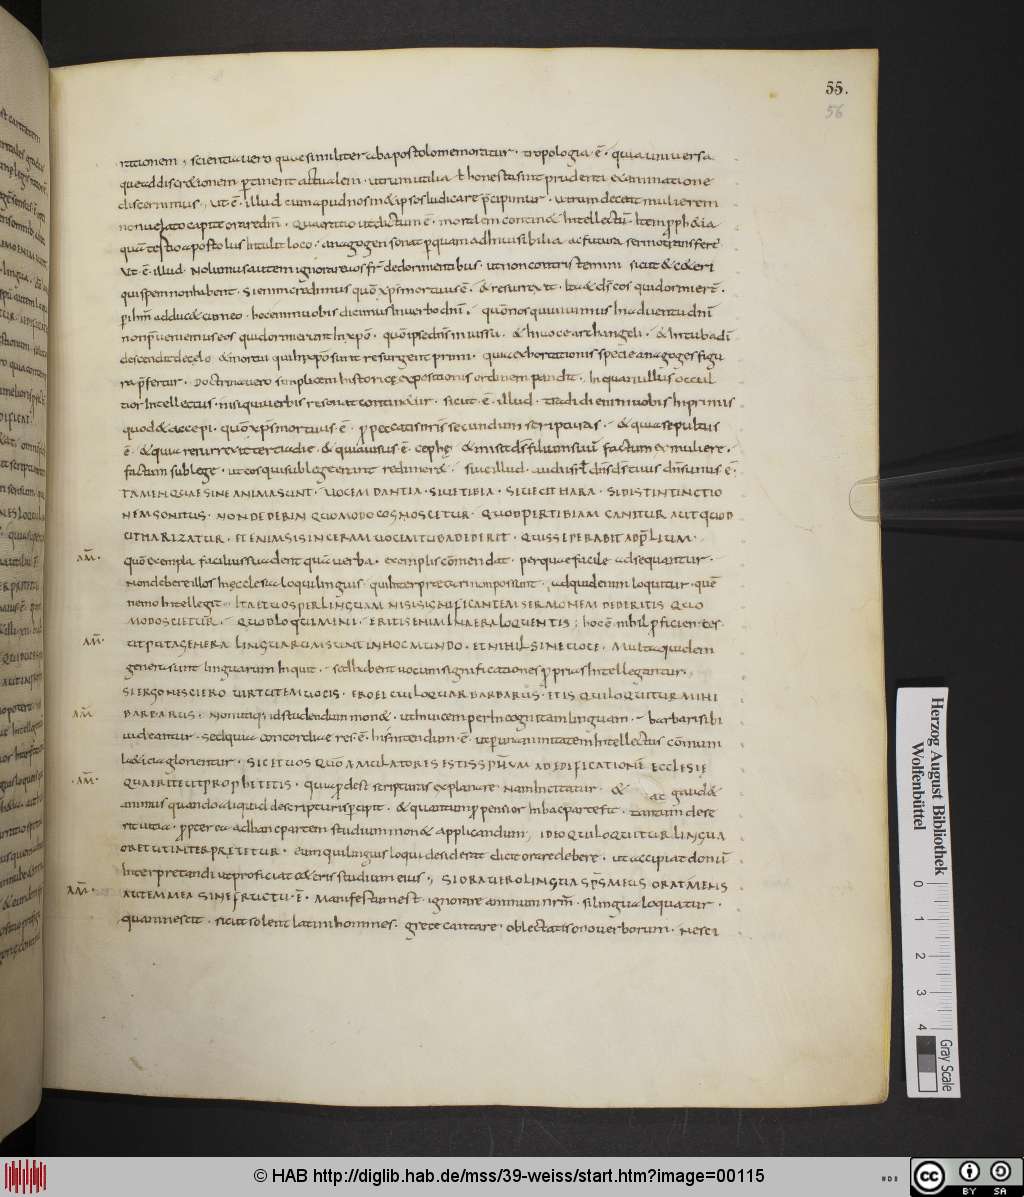 55.
56
rationem, scientia uero quae similiter ab apostolo memoratur · tropologia ē · qua uniuersa
quae ad discr&ionem pertinent actualem · utrum utilia uel honesta sint prudenti examinatione
discernimus, ut ē · illud cum apud nos m&ipsos Iudicare p̄cipimur · utrum deceat mulierem
non uelato capite orare dm̄ · Quae ratio ut dictum ē · moralem contin& Intellectū · Item pph&ia
quā tertio apostolus Intulit loco · anagogen sonat p quam ad Inuisibilia ac futura sermo transfert
Ut ē illud · Nolumus autem ignorare uos fr̄ de dormientibus · ut non contristemini sicut & c&eri
qui spem non habent · Si enim credimus quō xp̄s mortuus ē · & resurrexit · Ita & dēs eos qui dormierē ·
p ihm̄ adduc& cum eo · hoc enim uobis dicimus In uerbo dn̄i · quō nos qui uiuimus In aduentu dn̄i
non p̄ueniemus eos qui dormierunt In xp̄o · quō ipse dn̄s in iussu · & In uoce archangeli · & In tuba dī
descendit de celo · & mortui qui In xp̄o sunt resurgent primi · quia exhortationis specie anagoges figu
ra p̄fertur · Doctrina uero simplicem historicę expositionis ordinem pandit · In qua nullus occul
tior Intellectus · nisi qui uerbis resonat contin&ur · sicut ē · illud · tradidi enim uobis Inprimis
quod & accepi · quō xp̄s mortuus ē · p peccatis nr̄is secundum scripturas · & quia sepultus
ē · & quia resurrexit tertia die · & quia uisus ē · cephę · & misit dēs filium suū factum ex muliere ·
factum sub lege · ut eos qui sub lege erant redimer& · siue illud · audi isrl̄ dn̄s dēs tuus dn̄s unus ē ·
TAMEN QUAE SINE ANIMA SUNT · UOCEM DANTIA · SIUE TIBIA · SIUE CITHARA · SI DISTINTINCTIO
NEM SONITUS · NON DEDERIN QUOMODO COSNOSCETUR · QUOD PER TIBIAM CANITUR AUT QUOD
CITHARIZATUR · ETENIM SI SINCERAM UOCEM TUBA DEDERIT · QUIS SE PERABIT AD P̄LIUM ·
AM̄ · quō exempla facilius suadent quā uerba · exemplis cōmendat · per quae facile adsequantur ·
Non debere illos In ęcclesia loqui linguis · qui Interpr&ari non possunt · ad quid enim loquitur · quē
nemo Intellegit · ITA ET UOS PER LINGUAM NISI SIGNIFICANTEM SERMONEM DEDERITIS QUO
MODO SCIETUR · QUOD LOQUIMINI · ERITIS ENIM IN AERA LOQUENTIS; hoc ē nihil pficientes
AM̄ · UT PUTA GENERA LINGUARUM SUNT IN HOC MUNDO · ET NIHIL SINE UOCE · Multa quidem
genera sunt linguarum Inquit · sed habent uocum significationes pprias Intellegantur ·
SI ERGO NESCIERO UIRTUTEM UOCIS · ERO EI CUI LOQUAR BARBARUS · ET IS QUI LOQUITUR MIHI
AM̄ BARBARUS · Non utiq; id studendum mon& · ut Inuicem per Incognitam linguam · barbari sibi
uideantur · Sed quia concordiae res ē · hīs nitendum ē · ut p unanimitatem Intellectus cōmuni
la&icia glorientur · SIC ET UOS QUO AMULATORES ESTIS SPR̄UM AD EDIFICATIONĒ ECCLESIĘ
· AM̄ · QUAERITE UT PROPHETETIS · quia pdest scripturis explanare · Nam Incitatur · & gaud&
ac
animus quando aliquid de scripturis pcipit · & quantum p pensior In hac parte fit · Tantum dese
rit uitia · ppter ea ad hanc partem studium mon& applicandum, IDEO QUI LOQUITUR LINGUA
ORET UT INTERPRETETUR · eum qui linguis loqui desiderat dicit orare debere · ut accipiat donū
Interpretandi ut proficiat c&eris studium eius, SI ORAUERO LINGUA SP̄S MEUS ORAT MENS
AM̄ · AUTEM MEA SINE FRUCTU · Ē · Manifestum est · ignorare animum nr̄m · si lingua loquatur ·
quam nescit · sicut solent latini homines · grece cantare · oblectatis ono uerborum · Nesci
Herzog August Bibliothek
Wolfenbüttel
0 1 2 3 4
Gray Scale
© HAB http://diglib.hab.de/mss/39-weiss/start.htm?image=00115
cc BY SA